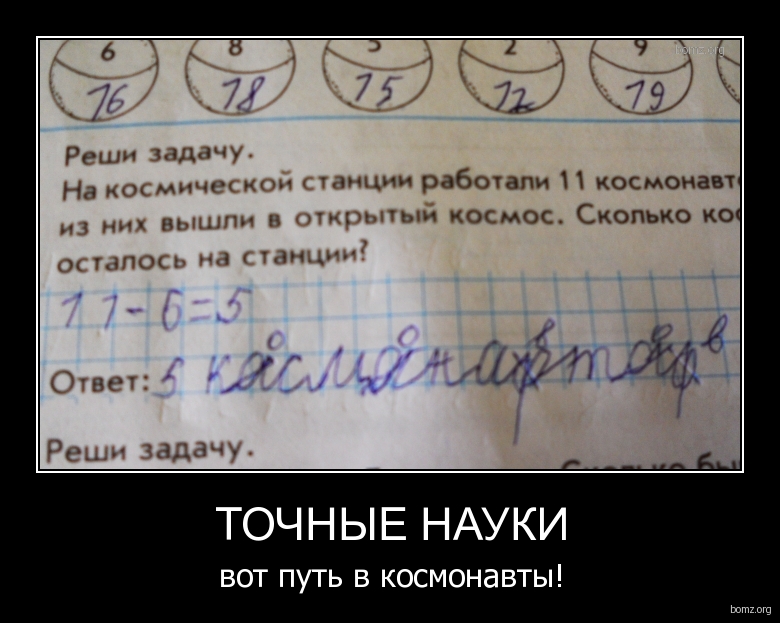 6 8 5 2 9
16 18 15 12 19
bomz.org
Реши задачу.
На космической станции работали 11 космонавт
из них вышли в открытый космос. Сколько кос
осталось на станции?
11-6=5
Ответ: 5
Реши задачу.
ТОЧНЫЕ НАУКИ
вот путь в космонавты!
bomz.org